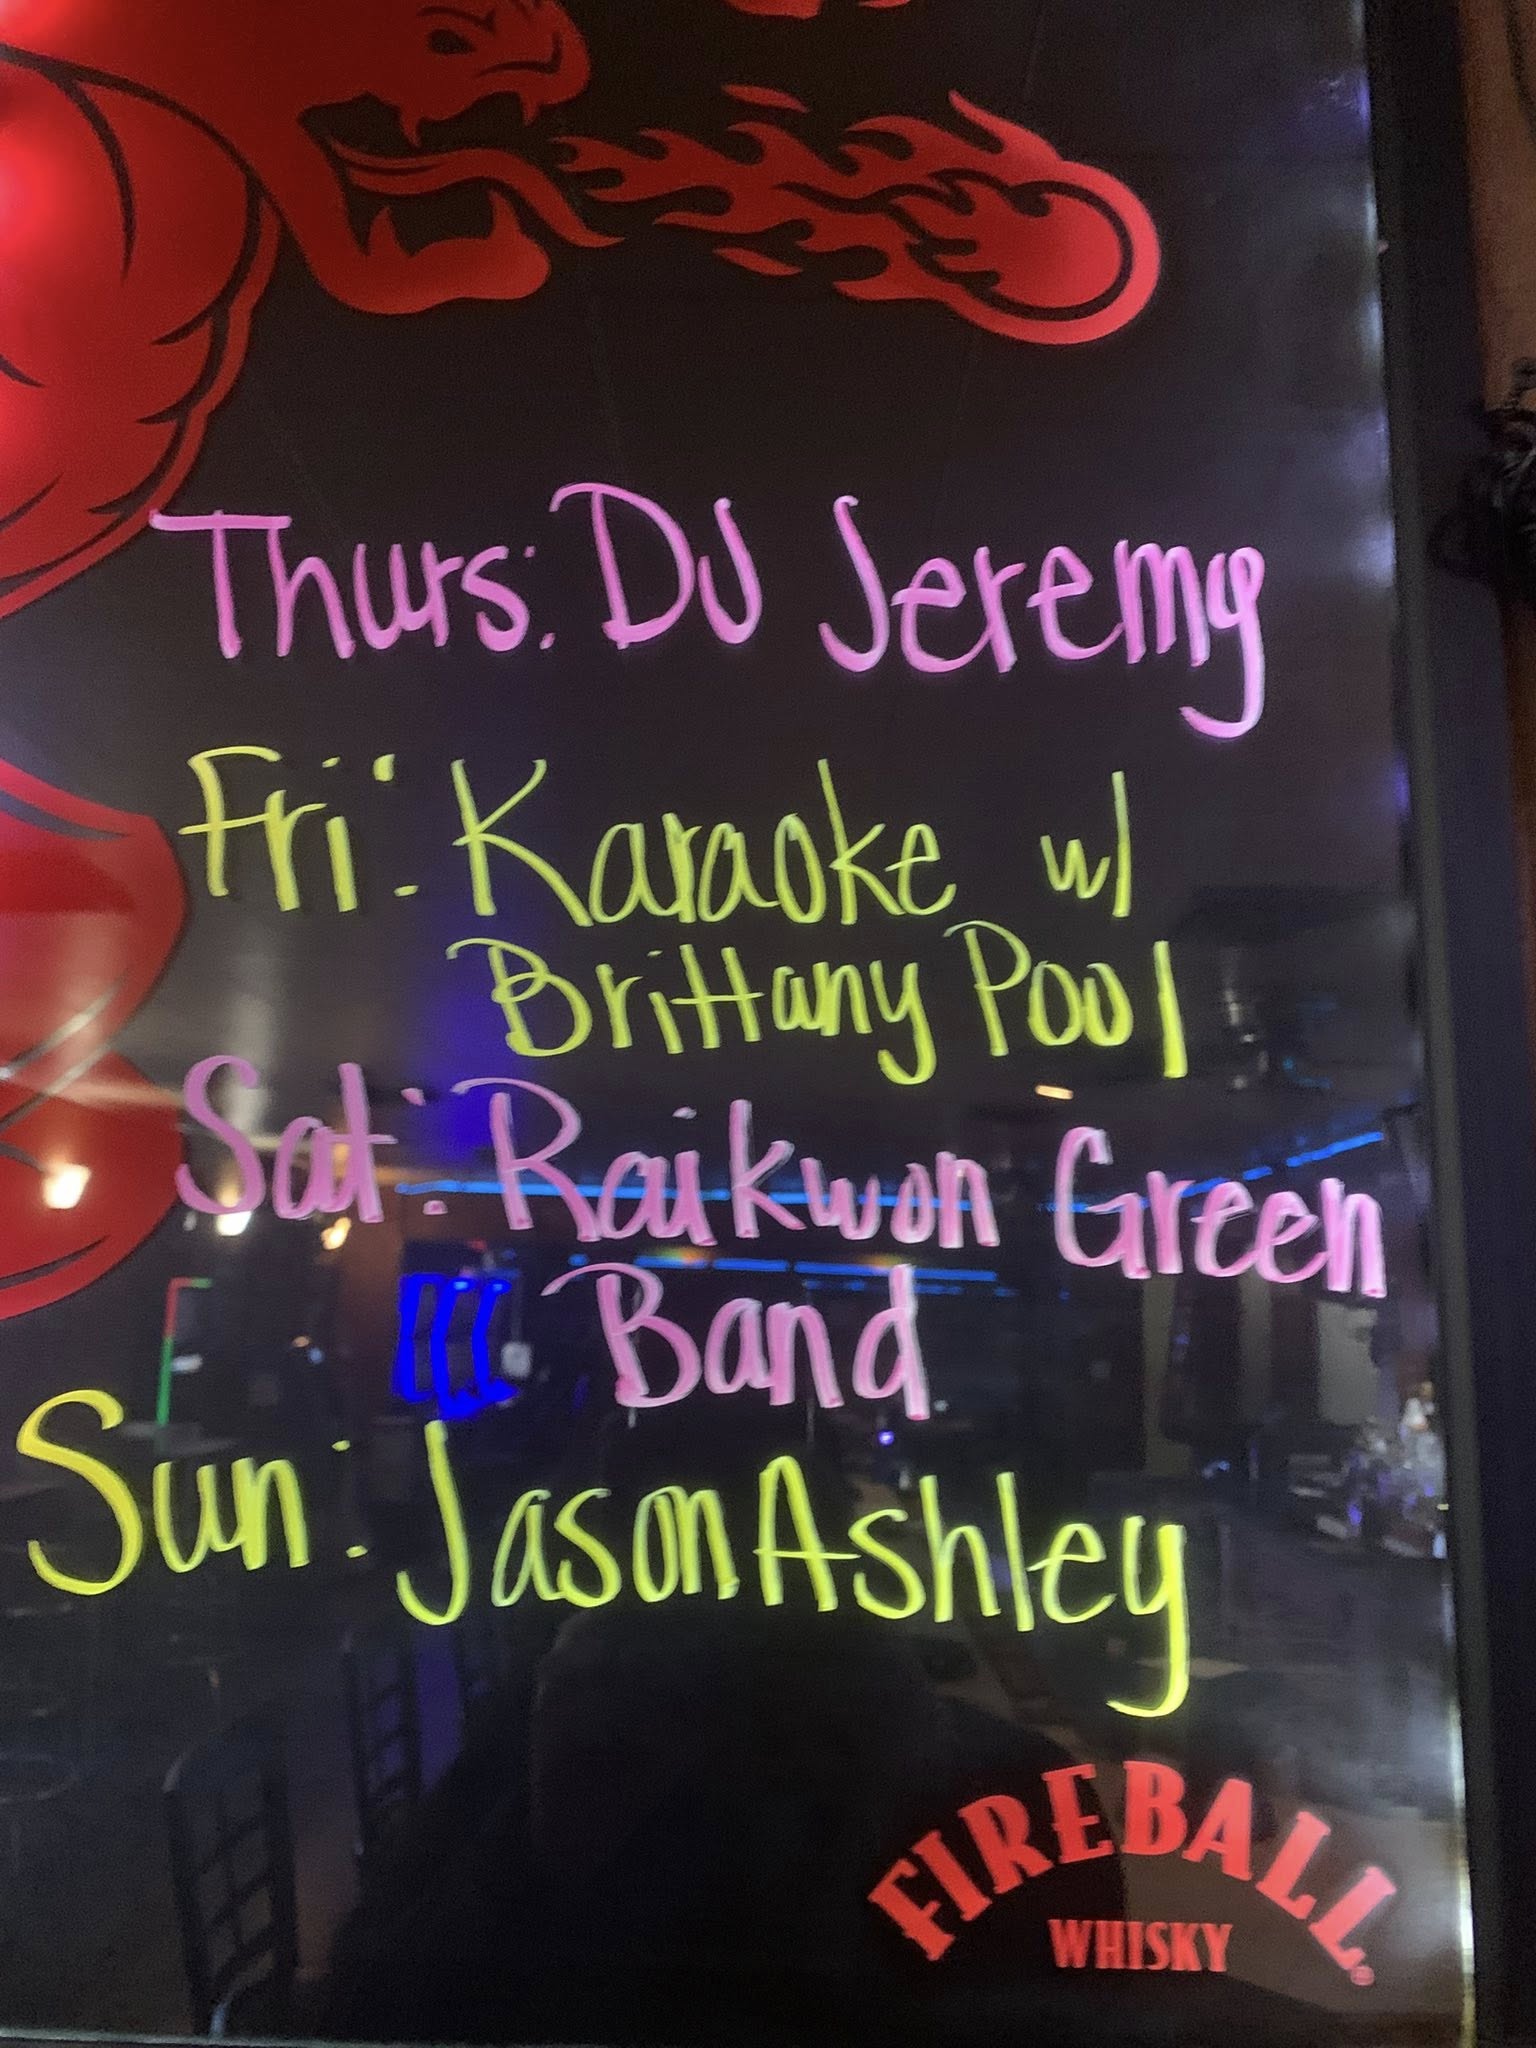 Thurs: DJ Jeremy
Fri: Karaoke w/
Brittany Pool
Sat: Raikwon Green
Band
Sun: Jason Ashley
FIREBALL®
WHISKY